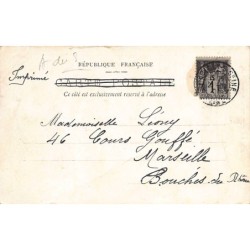 RÉPUBLIQUE FRANÇAISE
Imprimé
Ce côté est exclusivement réservé à l'adresse
Mademoiselle Séony
46 Cours Gouffé
Marseille
Bouches du Rhône